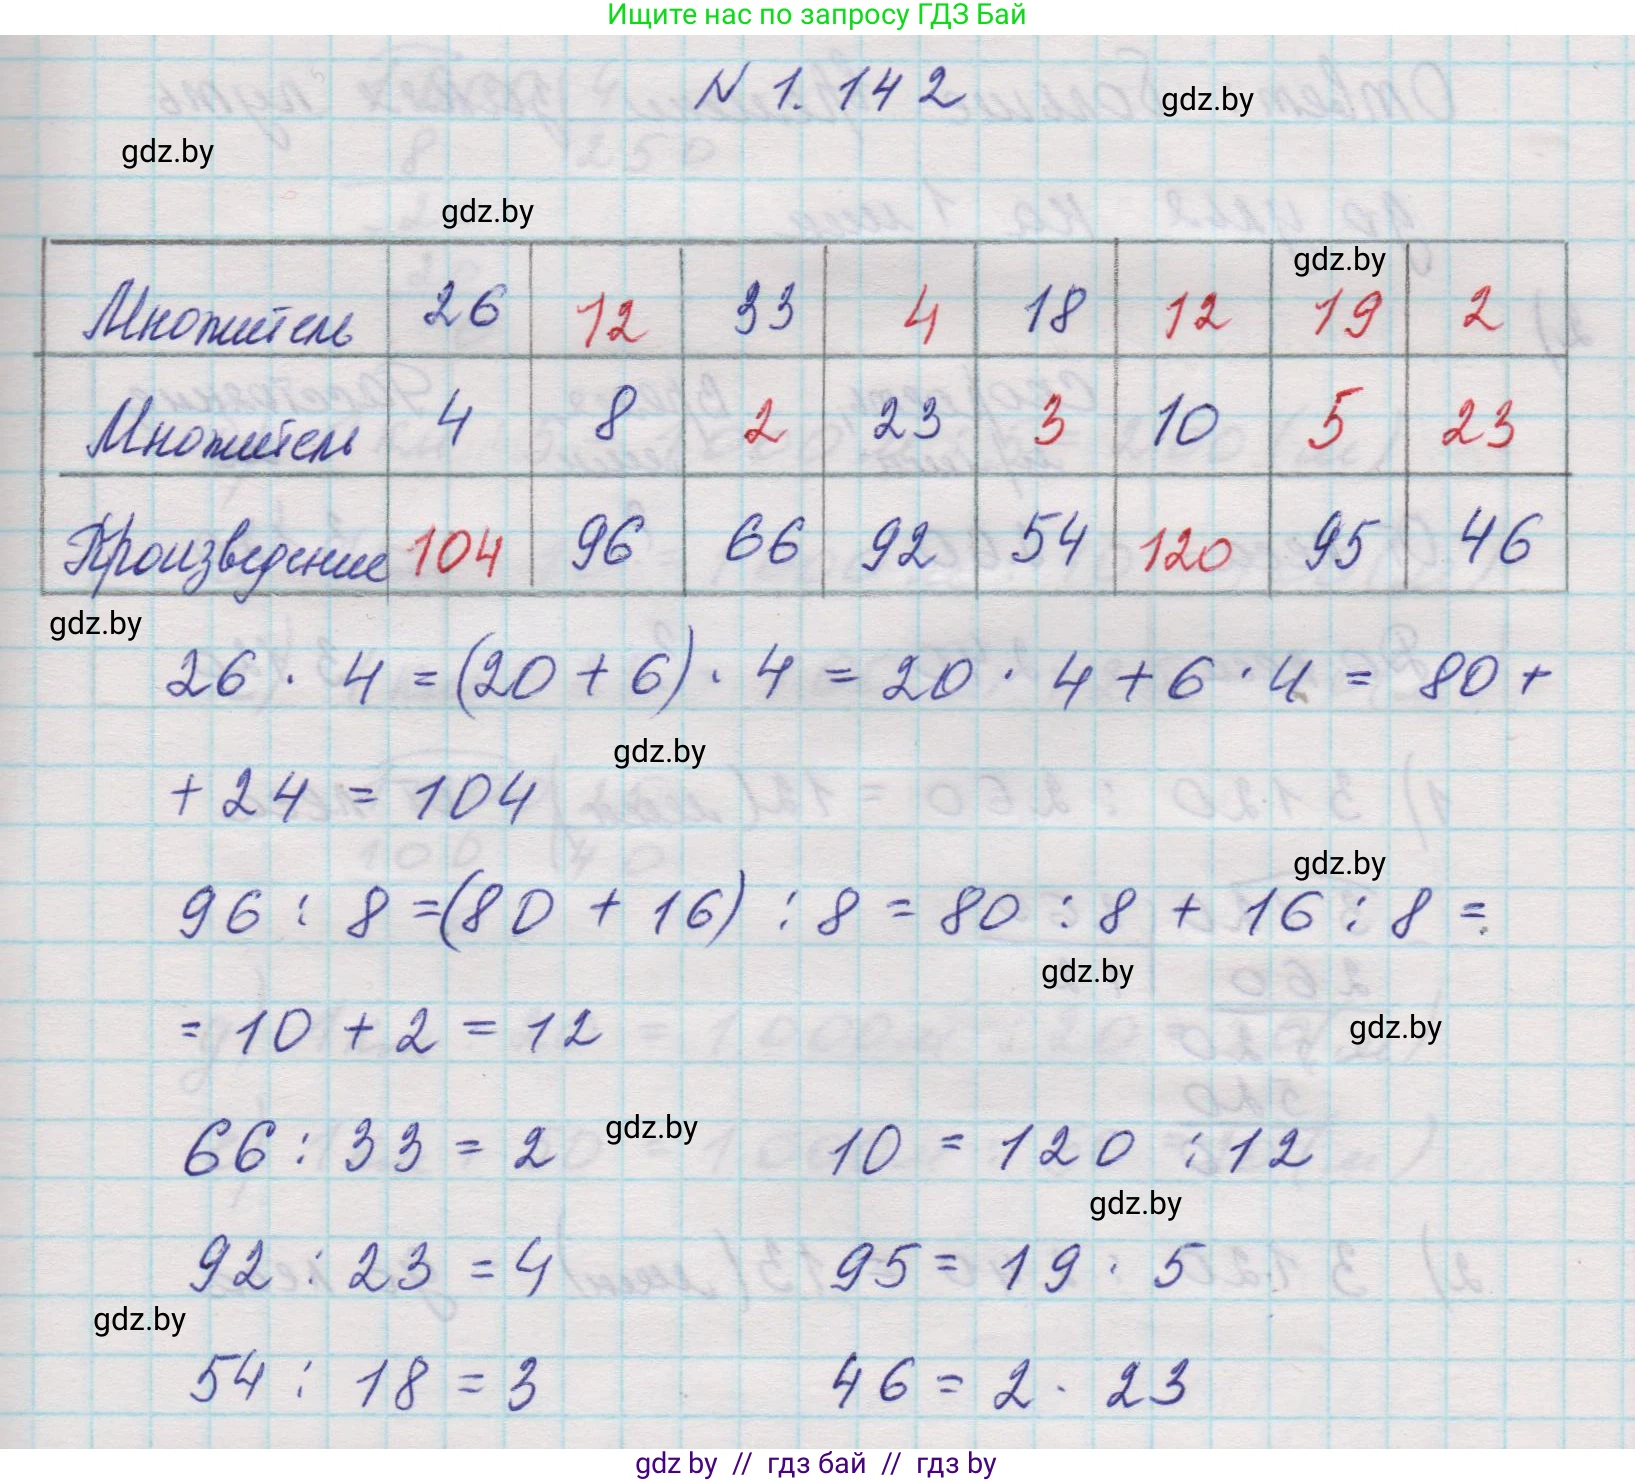 Ищите нас по запросу ГДЗ Бай
N 1.142
gdz.by
gdz.by
gdz.by
gdz.by
Множитель 26 12 33 4 18 12 19 2
Множитель 4 8 2 23 3 10 5 23
Произведение 104 96 66 92 54 120 95 46
gdz.by
26 · 4 = (20 + 6) · 4 = 20 · 4 + 6 · 4 = 80 +
gdz.by
+ 24 = 104
gdz.by
96 : 8 = (80 + 16) : 8 = 80 : 8 + 16 : 8 =
gdz.by
= 10 + 2 = 12
gdz.by
66 : 33 = 2 gdz.by 10 = 120 : 12
gdz.by
92 : 23 = 4 95 = 19 · 5
gdz.by
54 : 18 = 3 46 = 2 · 23
gdz by // гдз бай // gdz by